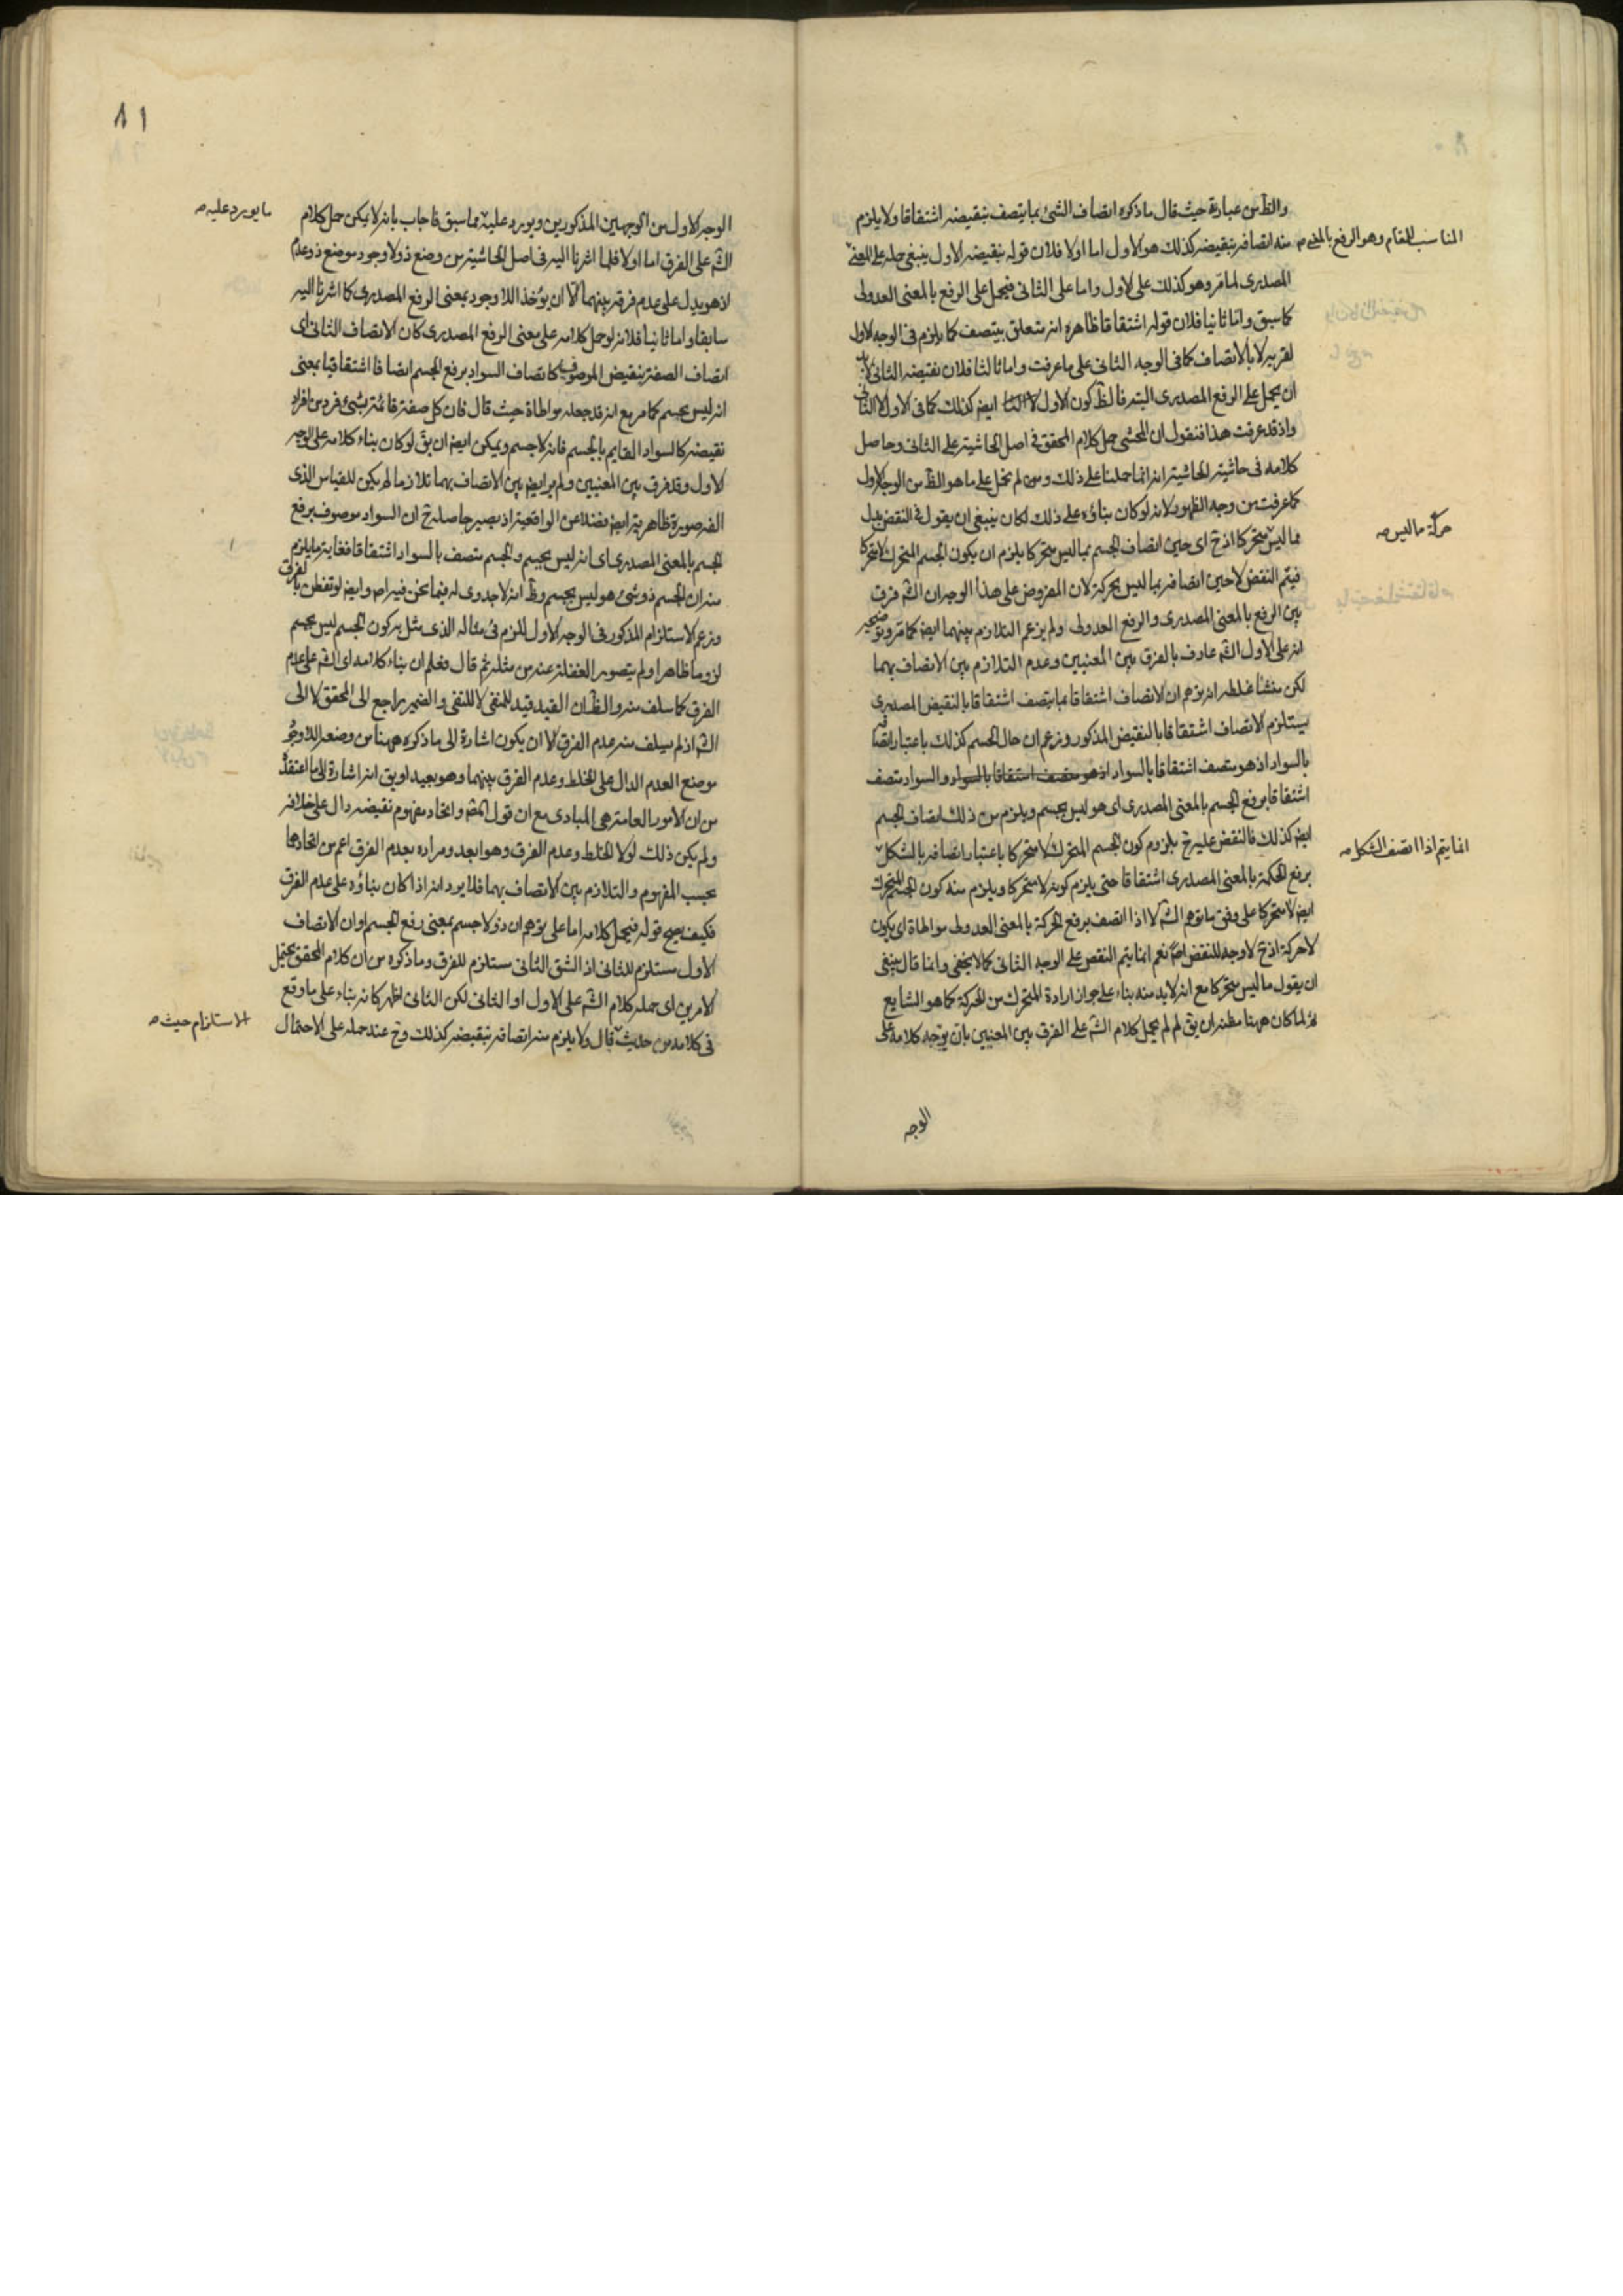 والظ من عبارة حيث قال ما ذكوه اتصاف الشئ بما يتصف بنقيضه اشتقاقا ولا يلزم
منه اتصافه بنقيضه كذلك هو الاول اما اولا فلان قوله بنقيضه الاول ينبغى حمله على المعنى
المناسب للمقام وهو الرفع بالمعنى
المصدرى لما مر وهو كذلك على الاول واما على الثانى فيحمل على الرفع بالمعنى العدولى
كما سبق واما ثانيا فلان قوله اشتقاقا ظاهره انه متعلق بيتصف كما يلزم فى الوجه الاول
لقربه لا بالاتصاف كما فى الوجه الثانى على ما عرفت واما ثالثا فلان نقيضه الثانى لا بد
ان يحمل على الرفع المصدرى البتة فالظ كون الاول ايض كذلك كما فى الاول لا الثانى
واذ قد عرفت هذا فنقول ان المحشى حمل كلام المحقق فى اصل الحاشية على الثانى وحاصل
كلامه فى حاشية الحاشية انه انما حملنا على ذلك ولم نحمل على ما هو الظ من الوجه الاول
كما عرفت من وجه الظهور لانه لو كان بناؤه على ذلك لكان ينبغى ان يقول فى النقض بدل
مما ليس متحركا اذ ح اى حين اتصاف الجسم بما ليس متحركا يلزم ان يكون الجسم المتحرك لا متحركا
حركة ما ليس
فيتم النقض لا حين اتصافه بما ليس بحركة لان المفروض على هذا الوجه ان الش فرق
بين الرفع بالمعنى المصدرى والرفع العدولى ولم يزعم التلازم بينهما ايض كما مر وتوضيحه
انه على الاول الش عارف بالفرق بين المعنيين وعدم التلازم بين الاتصاف بهما
لكن منشأ غلطه انه توهم ان الاتصاف اشتقاقا بما يتصف اشتقاقا بالنقيض المصدرى
يستلزم الاتصاف اشتقاقا بالنقيض المذكور وزعم ان حال الجسم كذلك باعتبار اتصافه
بالسواد اذ هو متصف اشتقاقا بالسواد والسواد متصف
اشتقاقا برفع الجسم بالمعنى المصدرى اى هو ليس بجسم ويلزم من ذلك اتصاف الجسم
ايض كذلك فالنقض عليه ح بلزوم كون الجسم المتحرك لا متحركا باعتبار اتصافه بالشكل
انما يتم اذا اتصف الشكل
برفع الحركة بالمعنى المصدرى اشتقاقا حتى يلزم كونه لا متحركا ويلزم منه كون الجسم المتحرك
ايض لا متحركا على وفق ما توهم الش لا اذا اتصف برفع الحركة بالمعنى العدولى مواطاة اى يكون
لا حركة اذ ح لا وجه للنقض اصلا نعم انما يتم النقض على الوجه الثانى كما لا يخفى وانما قال ينبغى
ان يقول ما ليس متحركا مع انه لا بد منه بناء على جواز ارادة المتحرك من الحركة كما هو الشايع
ثم لما كان ههنا مظنة ان يق لم لم يحمل كلام الش على الفرق بين المعنيين بان يوجه كلامه على
الوجه
٨١
الوجه الاول من الوجهين المذكورين ويورد عليه مما سبق فاجاب بانه لا يمكن حمل كلام
ما يورد عليه
الش على الفرق اما اولا فلما اشرنا اليه فى اصل الحاشية من وضع ذو لا وجود موضع ذو عدم
اذ هو يدل على عدم فرقه بينهما الا ان يؤخذ اللا وجود بمعنى الرفع المصدرى كما اشرنا اليه
سابقا واما ثانيا فلانه لو حمل كلامه على معنى الرفع المصدرى كان الاتصاف الثانى اى
اتصاف الصفة بنقيض الموصوف كاتصاف السواد برفع الجسم اتصافا اشتقاقيا بمعنى
انه ليس بجسم كما مر مع انه قد جعله مواطاة حيث قال فان كل صفة قائمة بشئ فرد من افراد
نقيضه كالسواد القايم بالجسم فانه لا جسم ويمكن ايض ان يق لو كان بناء كلامه على الوجه
الاول وقد فرق بين المعنيين ولم ير ايض بين الاتصاف بهما تلازما لم يكن للقياس الذى
الفه صورة ظاهرية ايض فضلا عن الواقعية اذ يصير حاصله ح ان السواد موصوف برفع
الجسم بالمعنى المصدرى اى انه ليس بجسم والجسم متصف بالسواد اشتقاقا فغاية ما يلزم
منه ان الجسم ذو شئ هو ليس بجسم وظ انه لا جدوى له فيما نحن فيه اص وايض لو تفطن بالفرق
وزعم الاستلزام المذكور فى الوجه الاول للزم فى مثاله الذى مثل به كون الجسم ليس بجسم
لزوما ظاهرا ولم يتصور الغفلة عنه من مثله ثم قال فعلم ان بناء كلامه اى الش على عدم
الفرق كما سلف منه والظ ان القيد قيد للمنفى لا للنفى والضمير راجع الى المحقق لا الى
الش اذ لم يسلف منه عدم الفرق الا ان يكون اشارة الى ما ذكوه ههنا من وضعه اللاوجود
موضع العدم الدال على الخلط وعدم الفرق بينهما وهو بعيد او يق انه اشارة الى ما اعتقده
من ان الامور العامة هى المبادى مع ان قول المصه واتحاد مفهوم نقيضه دال على خلافه
ولم يكن ذلك لولا الخلط وعدم الفرق وهو ابعد ومراده بعدم الفرق اعم من اتحادها
بحسب المفهوم والتلازم بين الاتصاف بهما فلا يرد انه اذا كان بناؤه على عدم الفرق
فكيف يصح قوله فيحمل كلامه اما على توهم ان ذو لا جسم بمعنى رفع الجسم او ان الاتصاف
الاول مستلزم للثانى اذ الشق الثانى مستلزم للفرق وما ذكوه من ان كلام المحقق يحتمل
الامرين اى حمله كلام الش على الاول او الثانى لكن الثانى اظهر كانه بناء على ما وقع
فى كلامه من حديث قال ولا يلزم منه اتصافه بنقيضه كذلك وح عند حمله على الاحتمال
الاستلزام حيث